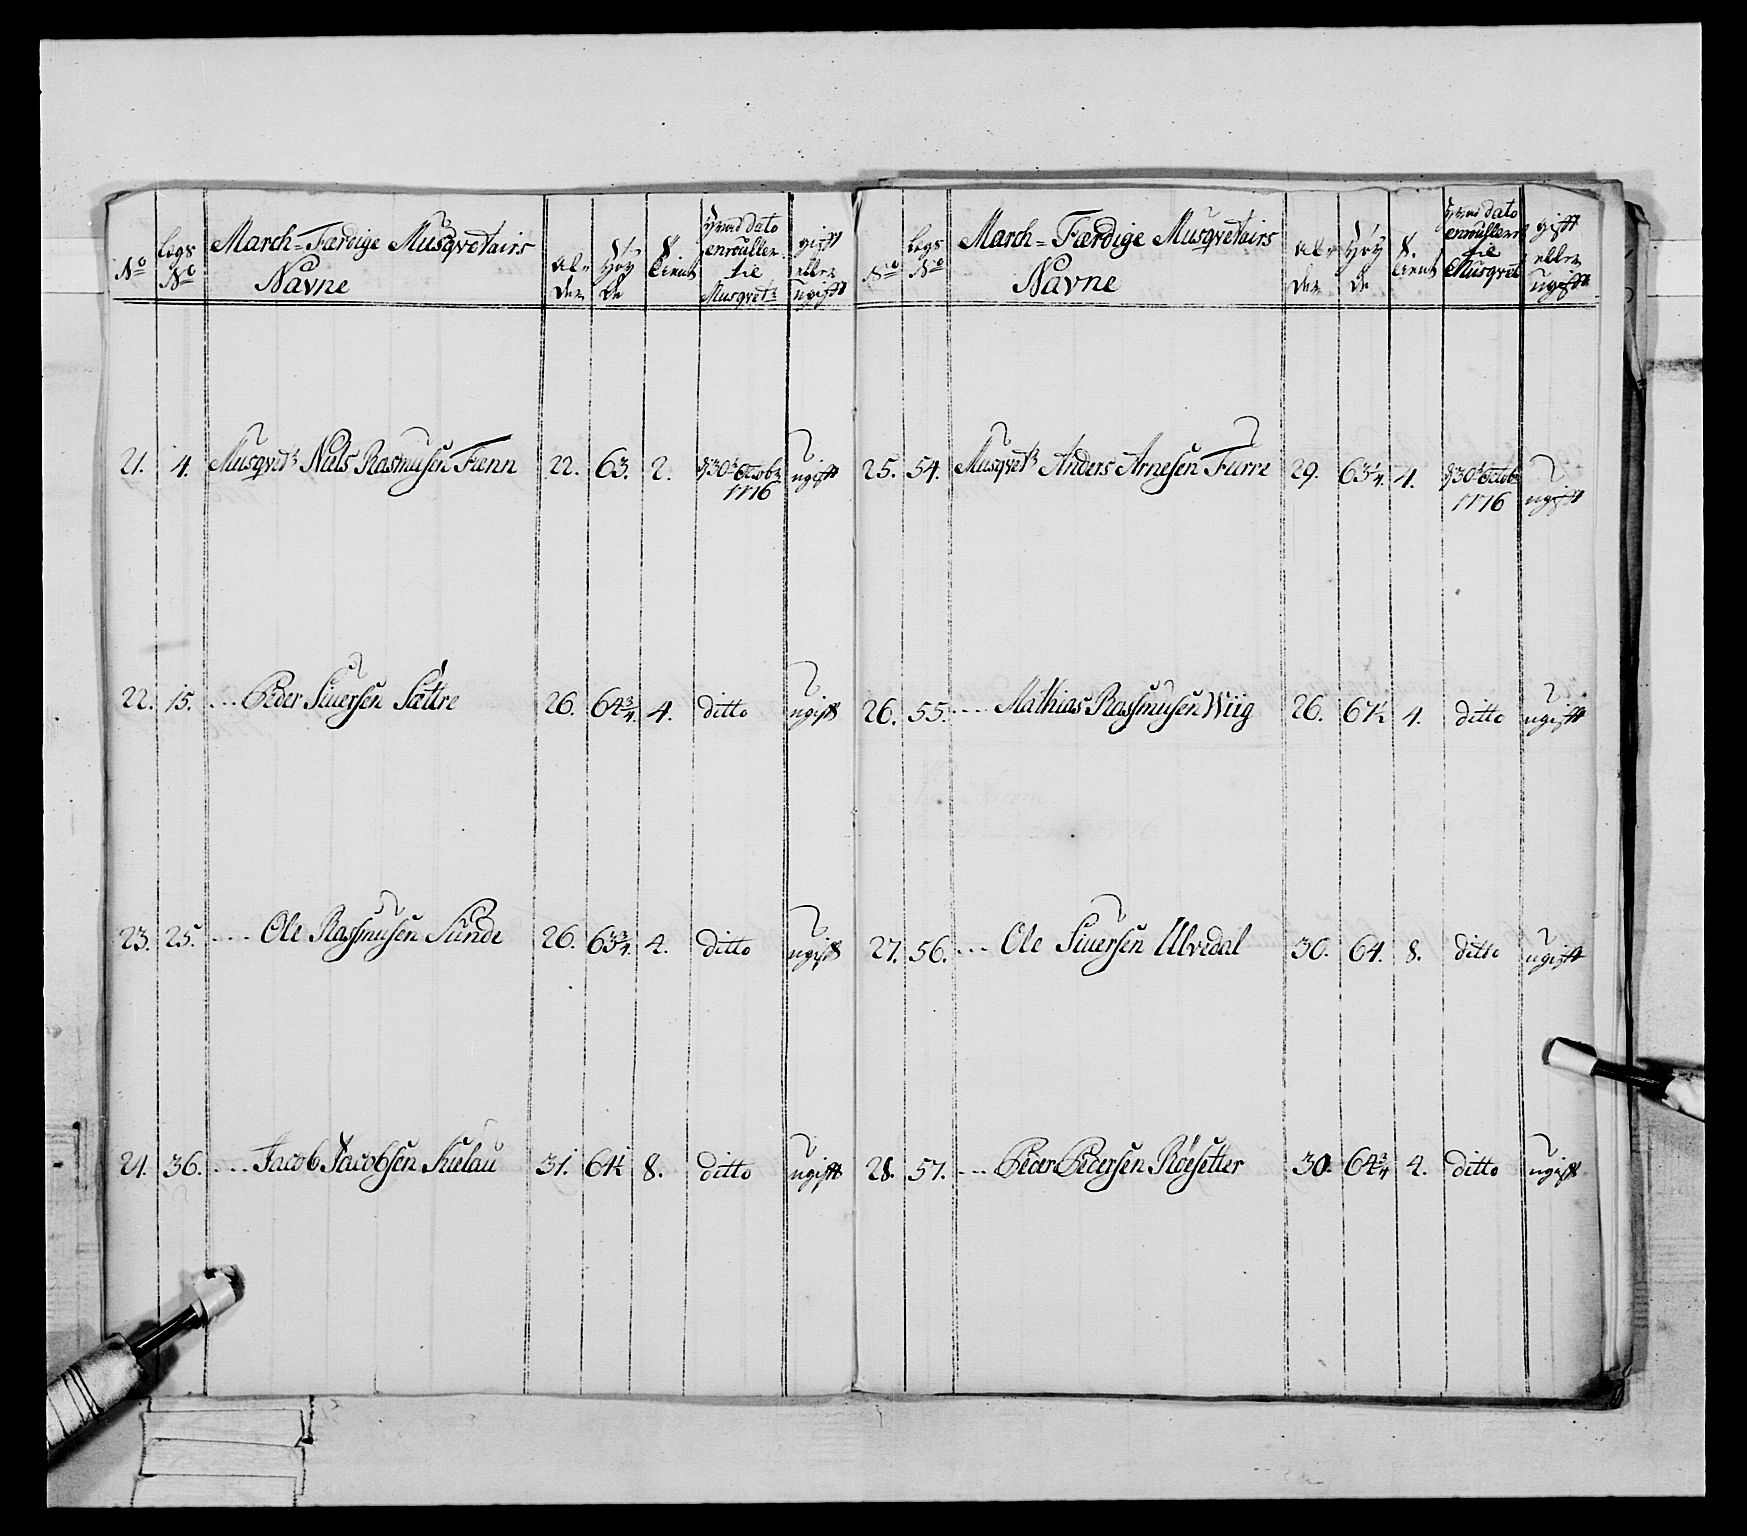 No
Legs No
March-Færdige Musqvetairs Navne
Al-der
Høy de
tient
dato enroulleret til Musqvetr
gift eller ugift
21. 4. Musqvetr Niels Rasmusen Fienn 22. 63. 2. d 30t Octobr 1776 ugift
22. 15. --- Peder Siuersen Sættre 26. 64 3/4. 4. ditto ugift
23. 25. --- Ole Rassmusen Sunde 26. 63 3/4. 4. ditto ugift
24. 36. --- Jacob Jacobsen 31. 64 1/2 8. ditto ugift
No
Legs No
March-Færdige Musqvetairs Navne
Al-der
Høy de
tient
dato enroulleret til Musqvet
gift eller ugift
25. 54. Musqvetr Anders Arnesen Furre 29. 63 1/4. 4. d 30t Octobr 1776 ugift
26. 55. --- Mathias Rassmusen Wiig 26. 64 1/2 4. ditto ugift
27. 56. --- Ole Siuersen Ulvedal 30. 64. 8. ditto ugift
28. 57. --- Peder Pedersen Røesetter 30. 64 3/4 4. ditto ugift